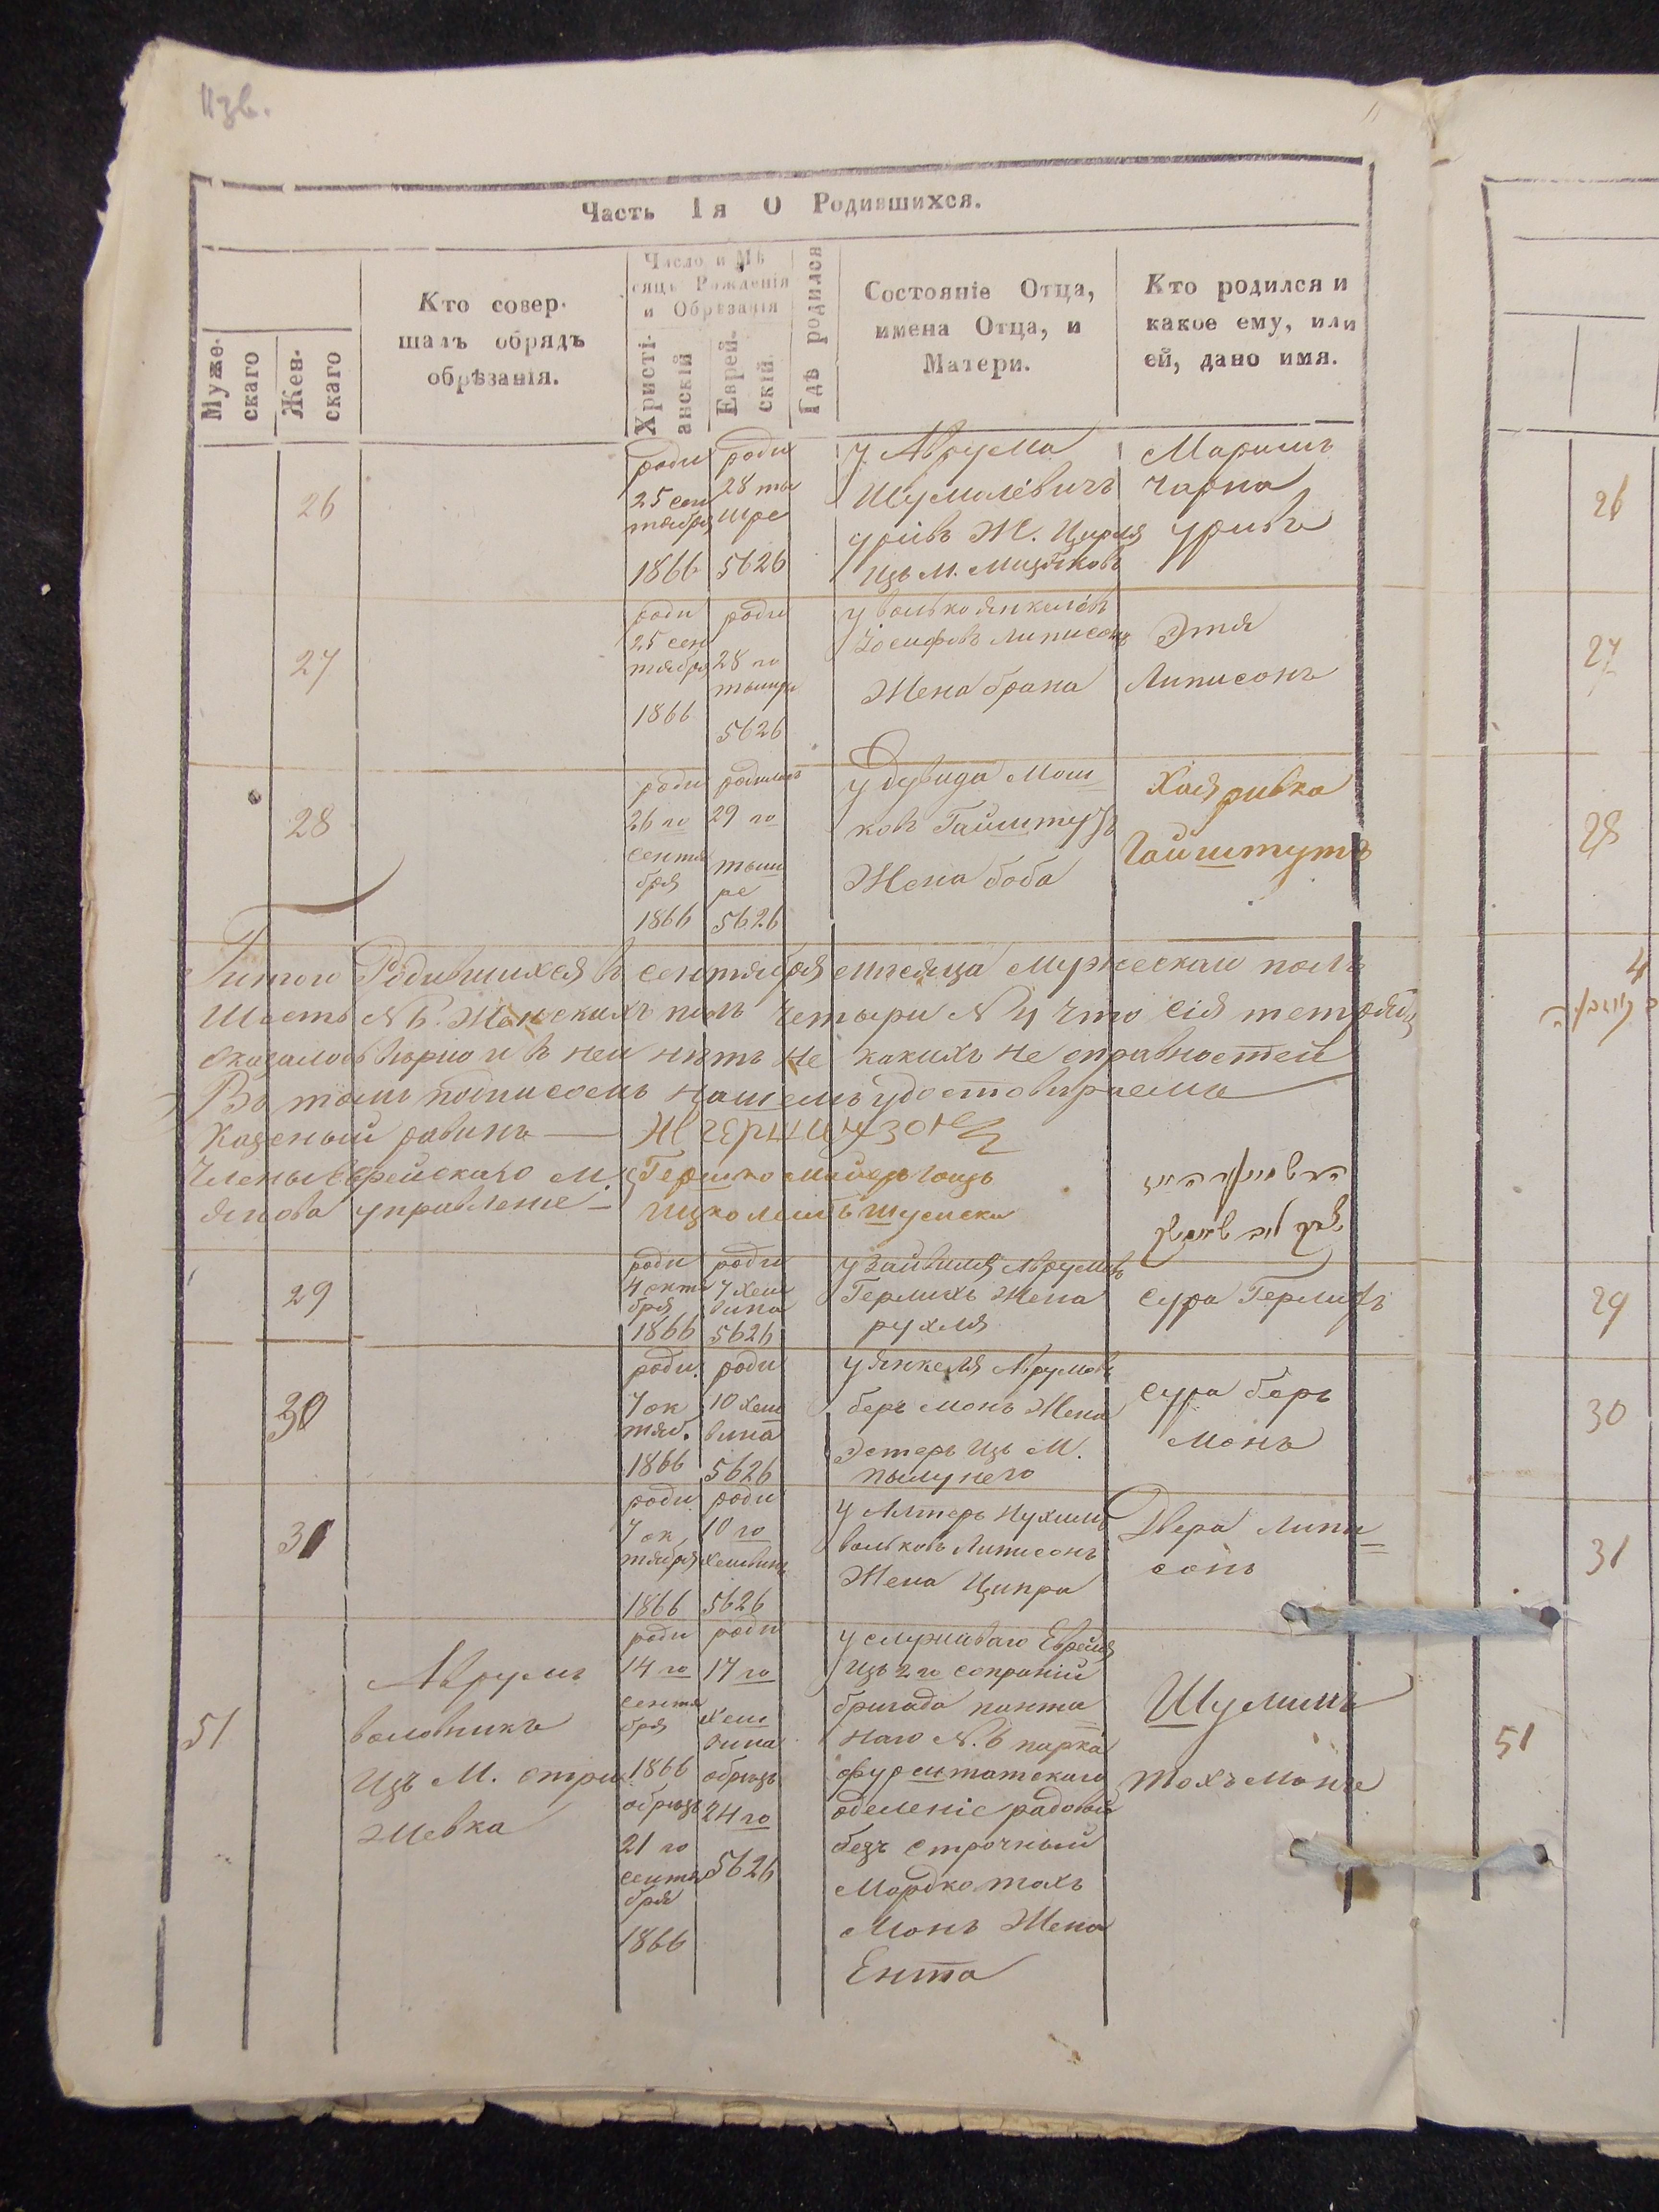 Часть 1я О Родившихся.
Муже-
скаго
Жен-
скаго
Кто совер-
шалъ обрядъ
обрѣзанія.
Число и Мѣ
сяцъ Рожденія
и Обрѣзанія
Христі-
анскій
Еврей-
скій.
Гдѣ родился
Состояніе Отца,
имена Отца, и
Матери.
Кто родился и
какое ему, или
ей, дано имя.
26
роди
25 сен
тября
1866
роди
28 ти
шре
5626
у Аврума
Шумилевичъ
Ж. Цирля
Изъ М.
Маримъ
Чарна
26
27
роди
25 сен
тября
1866
роди
28 го
тишри
5626
у Волько Янкелёвъ
Іосифовъ Липисонъ
Жена брана
Этя
Липисонъ
27
28
роди
26 го
сентя
бря
1866
родилась
29 го
тыш
ре
5626
у Дувида Мош
ковъ Гайштутъ
Жена боба
Хая ривка
Гайштутъ
28
Родившихся въ сентября месяца мужескаго полъ
Шесть N 6. Женскихъ полъ четыри N 4 что сія тетрадь
оказалось вѣрно и въ ней нѣтъ не какихъ не справностей
Въ томъ подписомъ нашемъ удостовѣраемъ
Казеный равинъ —
Члены Еврейскаго М.
Янова управление —
29
роди
4 октя
бря
1866
роди
7 хеш
вина
5626
у Зайвиля Аврумовъ
Герлихъ Жена
рухля
Сура Герлихъ
29
30
роди
7 ок
тяб.
1866
роди
10 хеш
вина
5626
у Янкеля Аврумовъ
беръ монъ Жена
Эстеръ Изъ М.
Сура беръ
монъ
30
31
роди
7 ок
тября
1866
роди
10 го
хешвина
5626
у Алтеръ Нухимъ
вольковъ Липисонъ
Жена Ципра
Двера Липи
сонъ
31
51
Аврумъ
воловникъ
Изъ М. стри
жевка
роди
14 го
сентя
бря
1866
обрѣзъ
21 го
сентя
бря
1866
роди
17 го
хеш
вина
обрѣзъ
24 го
5626
у служиваго Еврея
Изъ 2 го
бригада
наго N. 6 парка
фурштатскаго
оделеніе радовый
безъ строчный
Мордко тохъ
Монъ Жена
Ента
Шулимъ
тохъ Монъ
51